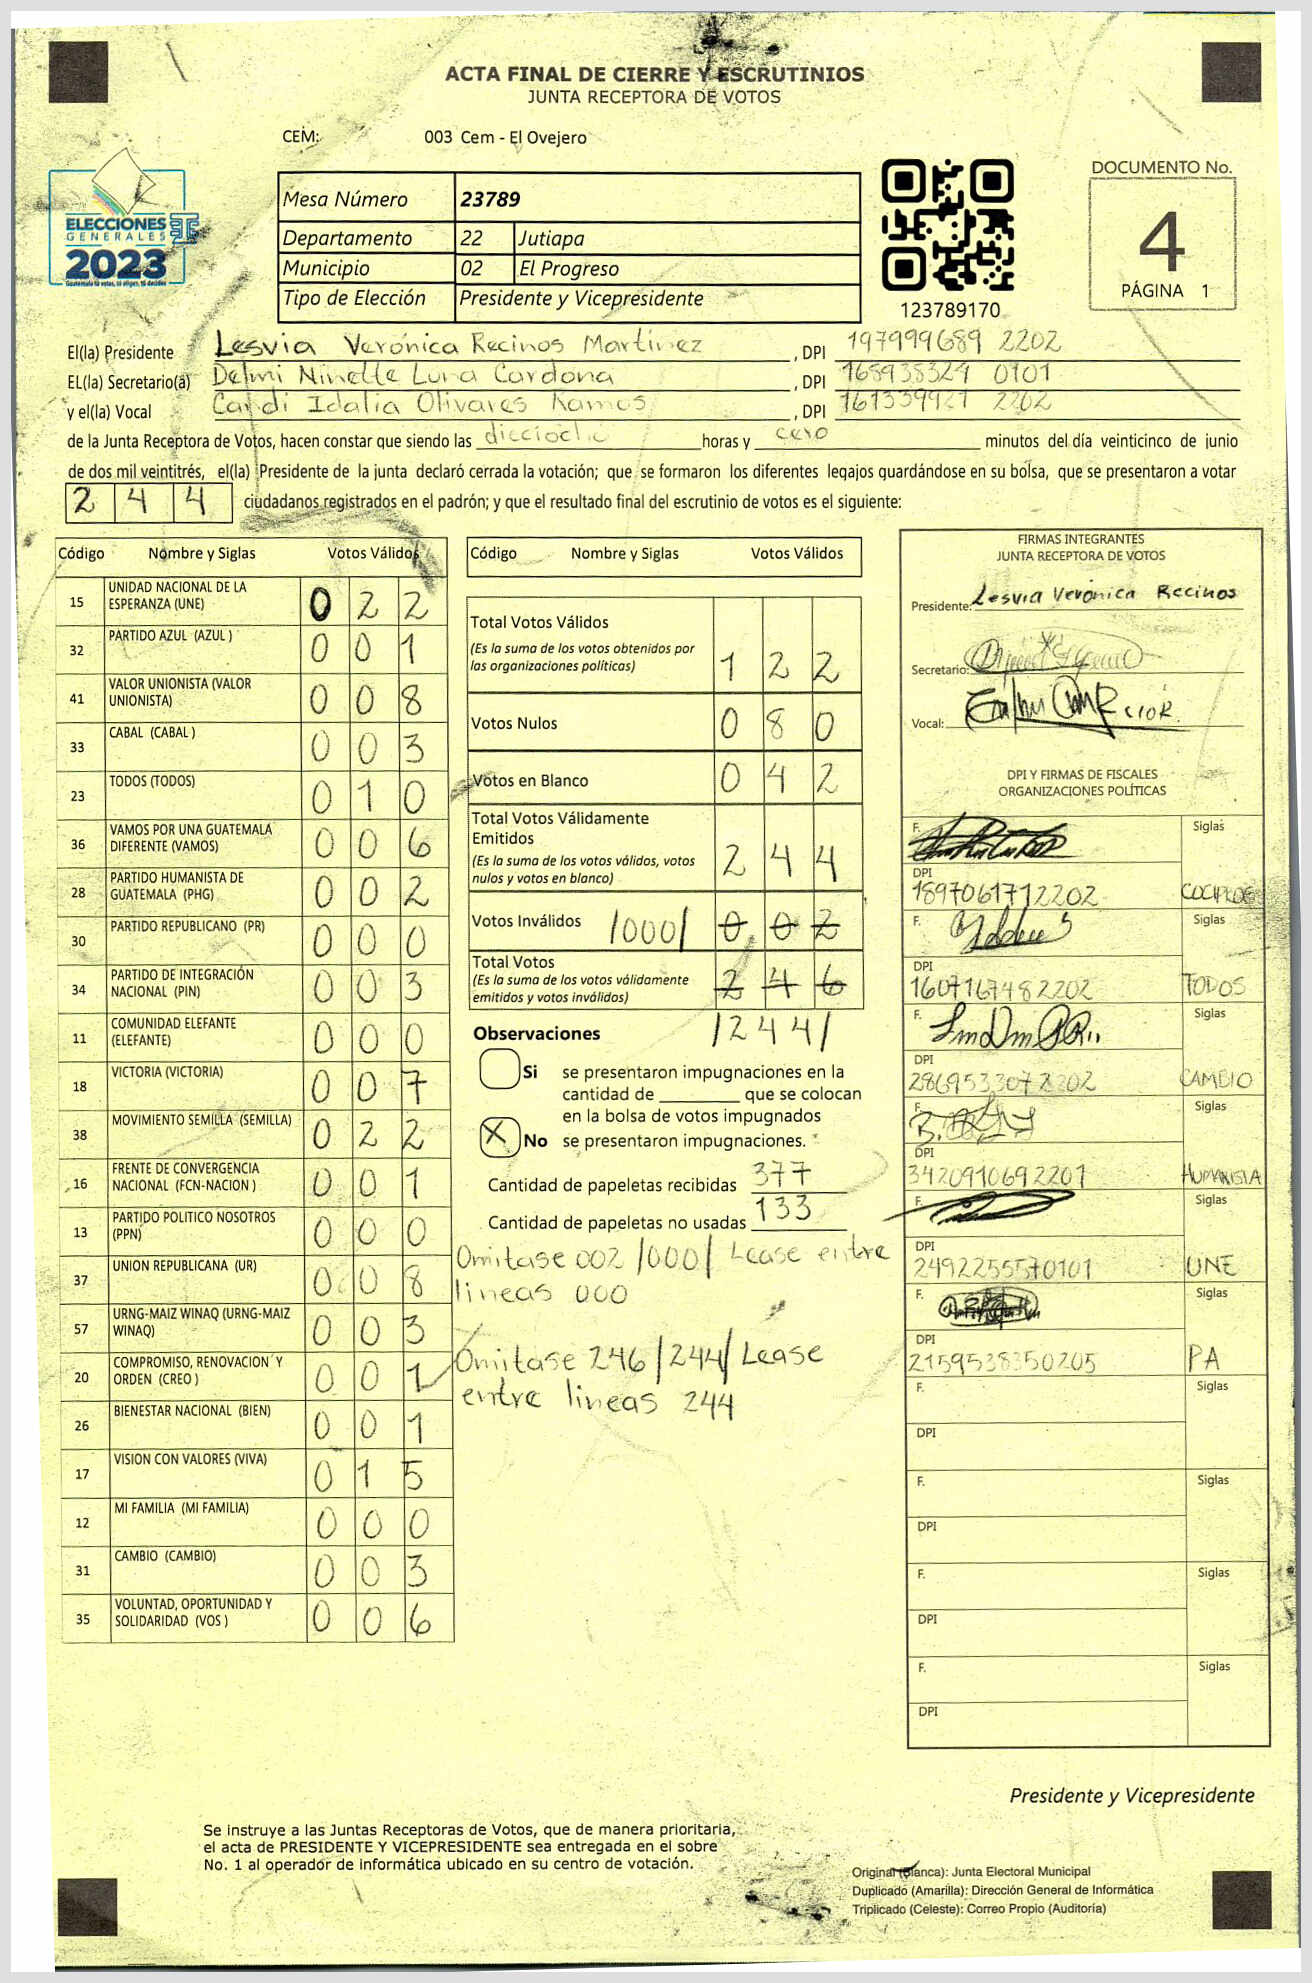 ACTA FINAL DE CIERRE Y ESCRUTINIOS
JUNTA RECEPTORA DE VOTOS
CEM: 003 Cem - El Ovejero
ELECCIONES
GENERALES
2023
Guatemala tú votas, tú eliges, tú decides
Mesa Número 23789
Departamento 22 Jutiapa
Municipio 02 El Progreso
Tipo de Elección Presidente y Vicepresidente
123789170
DOCUMENTO No.
4
PÁGINA 1
El(la) Presidente Lesvia Verónica Recinos Martinez, DPI 197999689 2202
EL(la) Secretario(a) Delmi Ninette Luna Cardona, DPI 168938329 0101
y el(la) Vocal Candi Idalia Olivares Ramos, DPI 161339921 2202
de la Junta Receptora de Votos, hacen constar que siendo las horas y cero minutos del día veinticinco de junio
de dos mil veintitrés, el(la) Presidente de la junta declaró cerrada la votación; que se formaron los diferentes legajos guardándose en su bolsa, que se presentaron a votar
2 4 4 ciudadanos registrados en el padrón; y que el resultado final del escrutinio de votos es el siguiente:
Código Nombre y Siglas Votos Válidos
15 UNIDAD NACIONAL DE LA ESPERANZA (UNE) 0 2 2
32 PARTIDO AZUL (AZUL ) 0 0 1
41 VALOR UNIONISTA (VALOR UNIONISTA) 0 0 8
33 CABAL (CABAL ) 0 0 3
23 TODOS (TODOS) 0 1 0
36 VAMOS POR UNA GUATEMALA DIFERENTE (VAMOS) 0 0 6
28 PARTIDO HUMANISTA DE GUATEMALA (PHG) 0 0 2
30 PARTIDO REPUBLICANO (PR) 0 0 0
34 PARTIDO DE INTEGRACIÓN NACIONAL (PIN) 0 0 3
11 COMUNIDAD ELEFANTE (ELEFANTE) 0 0 0
18 VICTORIA (VICTORIA) 0 0 7
38 MOVIMIENTO SEMILLA (SEMILLA) 0 2 2
16 FRENTE DE CONVERGENCIA NACIONAL (FCN-NACION ) 0 0 1
13 PARTIDO POLITICO NOSOTROS (PPN) 0 0 0
37 UNION REPUBLICANA (UR) 0 0 8
57 URNG-MAIZ WINAQ (URNG-MAIZ WINAQ) 0 0 3
20 COMPROMISO, RENOVACION Y ORDEN (CREO ) 0 0 1
26 BIENESTAR NACIONAL (BIEN) 0 0 1
17 VISION CON VALORES (VIVA) 0 1 5
12 MI FAMILIA (MI FAMILIA) 0 0 0
31 CAMBIO (CAMBIO) 0 0 3
35 VOLUNTAD, OPORTUNIDAD Y SOLIDARIDAD (VOS ) 0 0 6
Código Nombre y Siglas Votos Válidos
Total Votos Válidos
(Es la suma de los votos obtenidos por
las organizaciones políticas) 1 2 2
Votos Nulos 0 8 0
Votos en Blanco 0 4 2
Total Votos Válidamente
Emitidos
(Es la suma de los votos válidos, votos
nulos y votos en blanco) 2 4 4
Votos Inválidos /000/ 0 0 2
Total Votos
(Es la suma de los votos válidamente
emitidos y votos inválidos) 2 4 6
Observaciones /244/
Si se presentaron impugnaciones en la
cantidad de ________ que se colocan
en la bolsa de votos impugnados
X No se presentaron impugnaciones.
Cantidad de papeletas recibidas 377
Cantidad de papeletas no usadas 133
Omitase 002 /000/ Lease entre
lineas 000
Omitase 246 /244/ Lease
entre lineas 244
FIRMAS INTEGRANTES
JUNTA RECEPTORA DE VOTOS
Presidente: Lesvia Verónica Recinos
Secretario:
Vocal:
DPI Y FIRMAS DE FISCALES
ORGANIZACIONES POLÍTICAS
F. Siglas
DPI
1897061712202
F. Siglas
DPI
1607167482202 TODOS
F. Siglas
DPI
2869533072202 CAMBIO
F. Siglas
DPI
3420910692201 HUMANISTA
F. Siglas
DPI
2492255570101 UNE
F. Siglas
DPI
2159538350205 PA
F. Siglas
DPI
F. Siglas
DPI
F. Siglas
DPI
F. Siglas
DPI
Presidente y Vicepresidente
Se instruye a las Juntas Receptoras de Votos, que de manera prioritaria,
el acta de PRESIDENTE Y VICEPRESIDENTE sea entregada en el sobre
No. 1 al operador de informática ubicado en su centro de votación.
Original (Blanca): Junta Electoral Municipal
Duplicado (Amarilla): Dirección General de Informática
Triplicado (Celeste): Correo Propio (Auditoría)